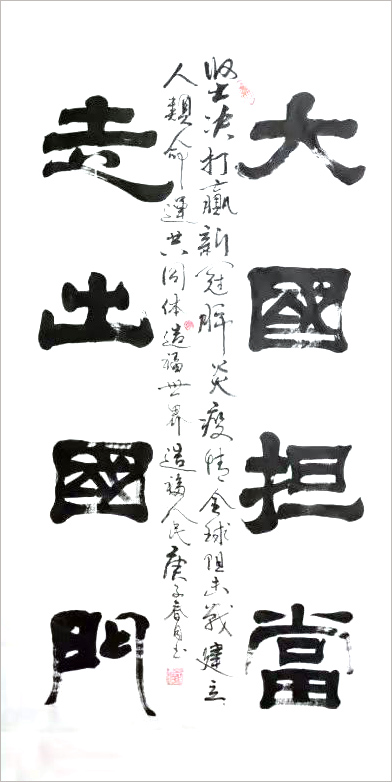 大國担當
走出國門
坚决打贏新冠肺炎疫情全球阻击戰建立
人類命運共同体造福世界造福人民庚子春月书